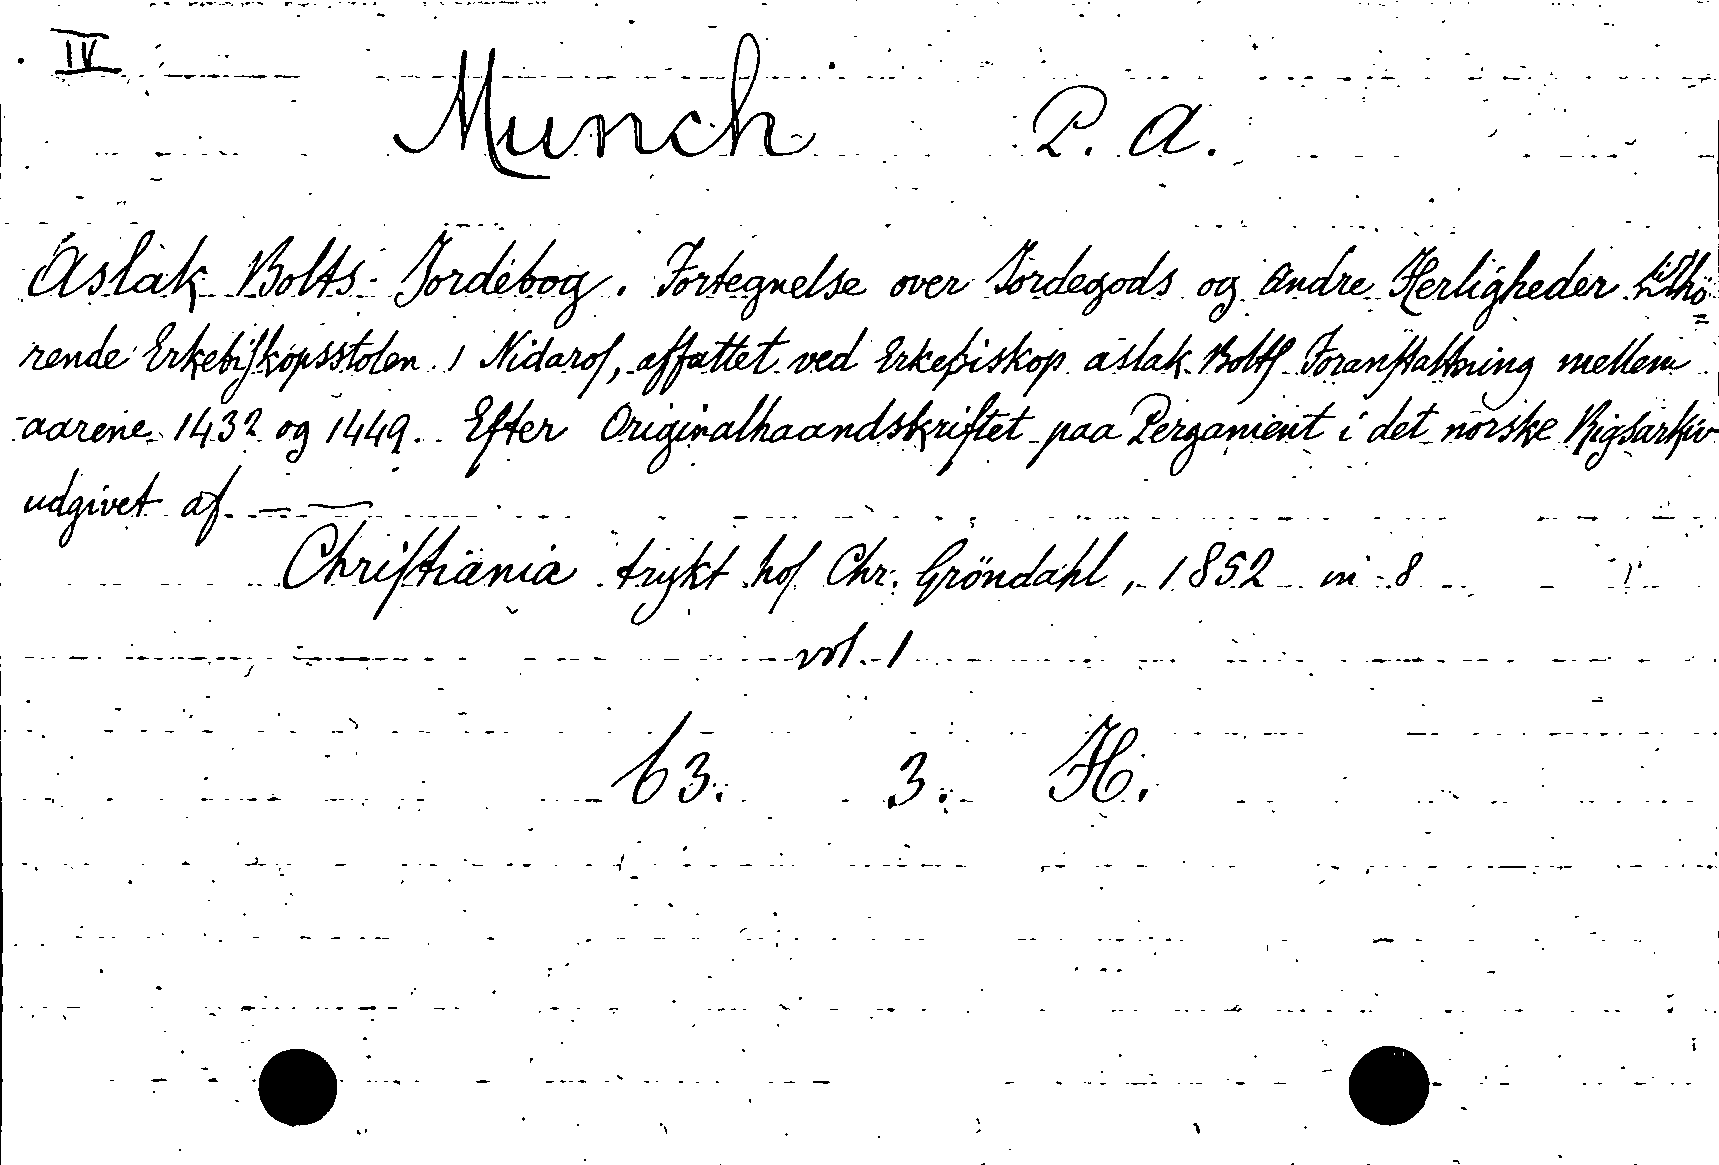 IV
Munch P. A.
Aslak Bolts Jordebog. Fortegnelse over Jordegods og andre Herligheder tilhö=
rende Erkebiskopsstolen i Nidaros, affattet ved Erkebiskop aslak Bolts Foranstaltning mellem
aarene 1432 og 1449. Efter Originalhaandskriftet paa Pergament i det norske Rigsarkiv
udgivet af — —
Christiania trykt hos Chr. Gröndahl, 1852 in 8
vol. 1
63. 3. H.